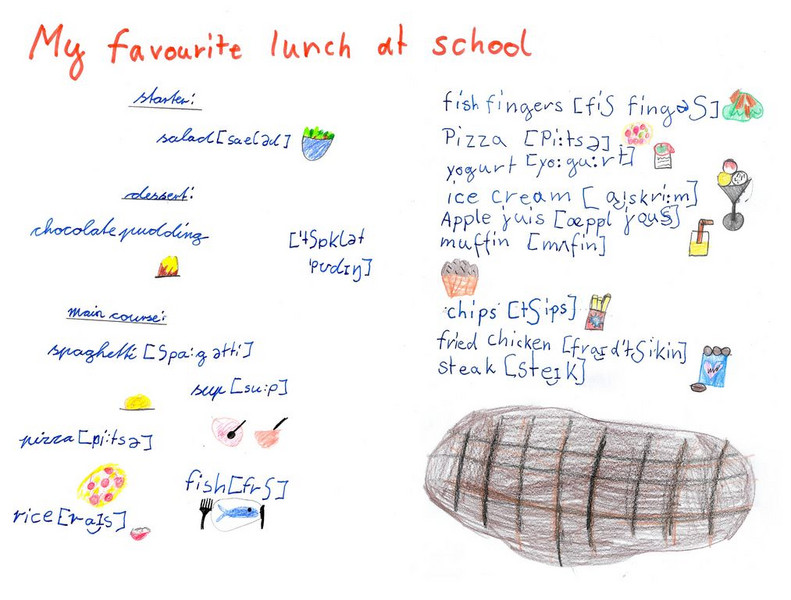 My favourite lunch at school
starter:
salad [saeləd]
dessert:
chocolate pudding
['tSpklət
'pudıŋ]
main course:
spaghetti [Spa:gətti]
sup [su:p]
pizza [pi:tsə]
fish [frS]
rice [raıs]
fish fingers [fiS fingəS]
Pizza [Pi:tsə]
yogurt [yo:gu:rt]
ice cream [aıskri:m]
Apple juis [æppl jous]
muffin [mʌfin]
chips [tSips]
fried chicken [fraıd'tSikin]
steak [Steık]